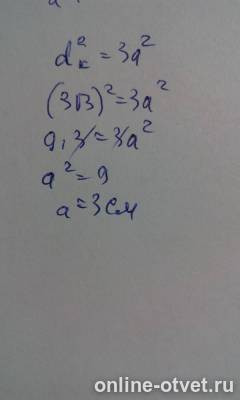 d²ₖ = 3a²
(3√3)² = 3a²
9·3 = 3a²
a² = 9
a = 3см
online-otvet.ru